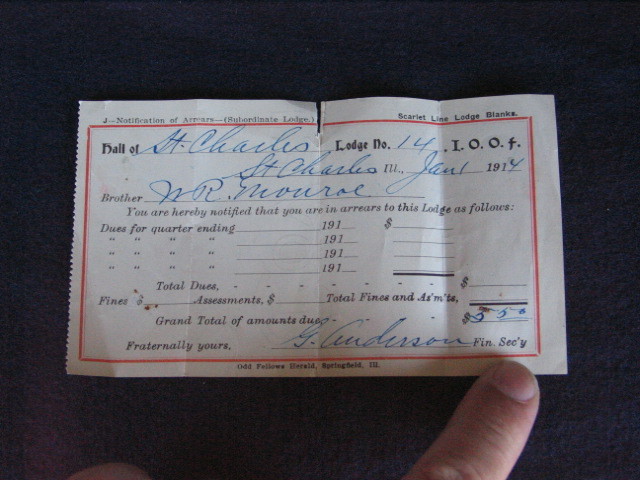 J—Notification of Arrears—(Subordinate Lodge.) Scarlet Line Lodge Blanks.
Hall of St. Charles Lodge No. 14, I. O. O. F.
St Charles Ill., Jan 1 1914
Brother W R. Monroe
You are hereby notified that you are in arrears to this Lodge as follows:
Dues for quarter ending 191 $
" " " " 191
" " " " 191
" " " " 191
Total Dues, - - - - - - - - $
Fines $ Assessments, $ Total Fines and As'm'ts,
Grand Total of amounts due - - - - $5 50
Fraternally yours, G. Anderson Fin. Sec'y
Odd Fellows Herald, Springfield, Ill.